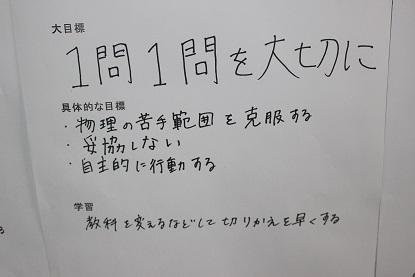 大目標
1問1問を大切に
具体的な目標
・物理の苦手範囲を克服する
・妥協しない
・自主的に行動する
学習
教科を変えるなどして切りかえを早くする